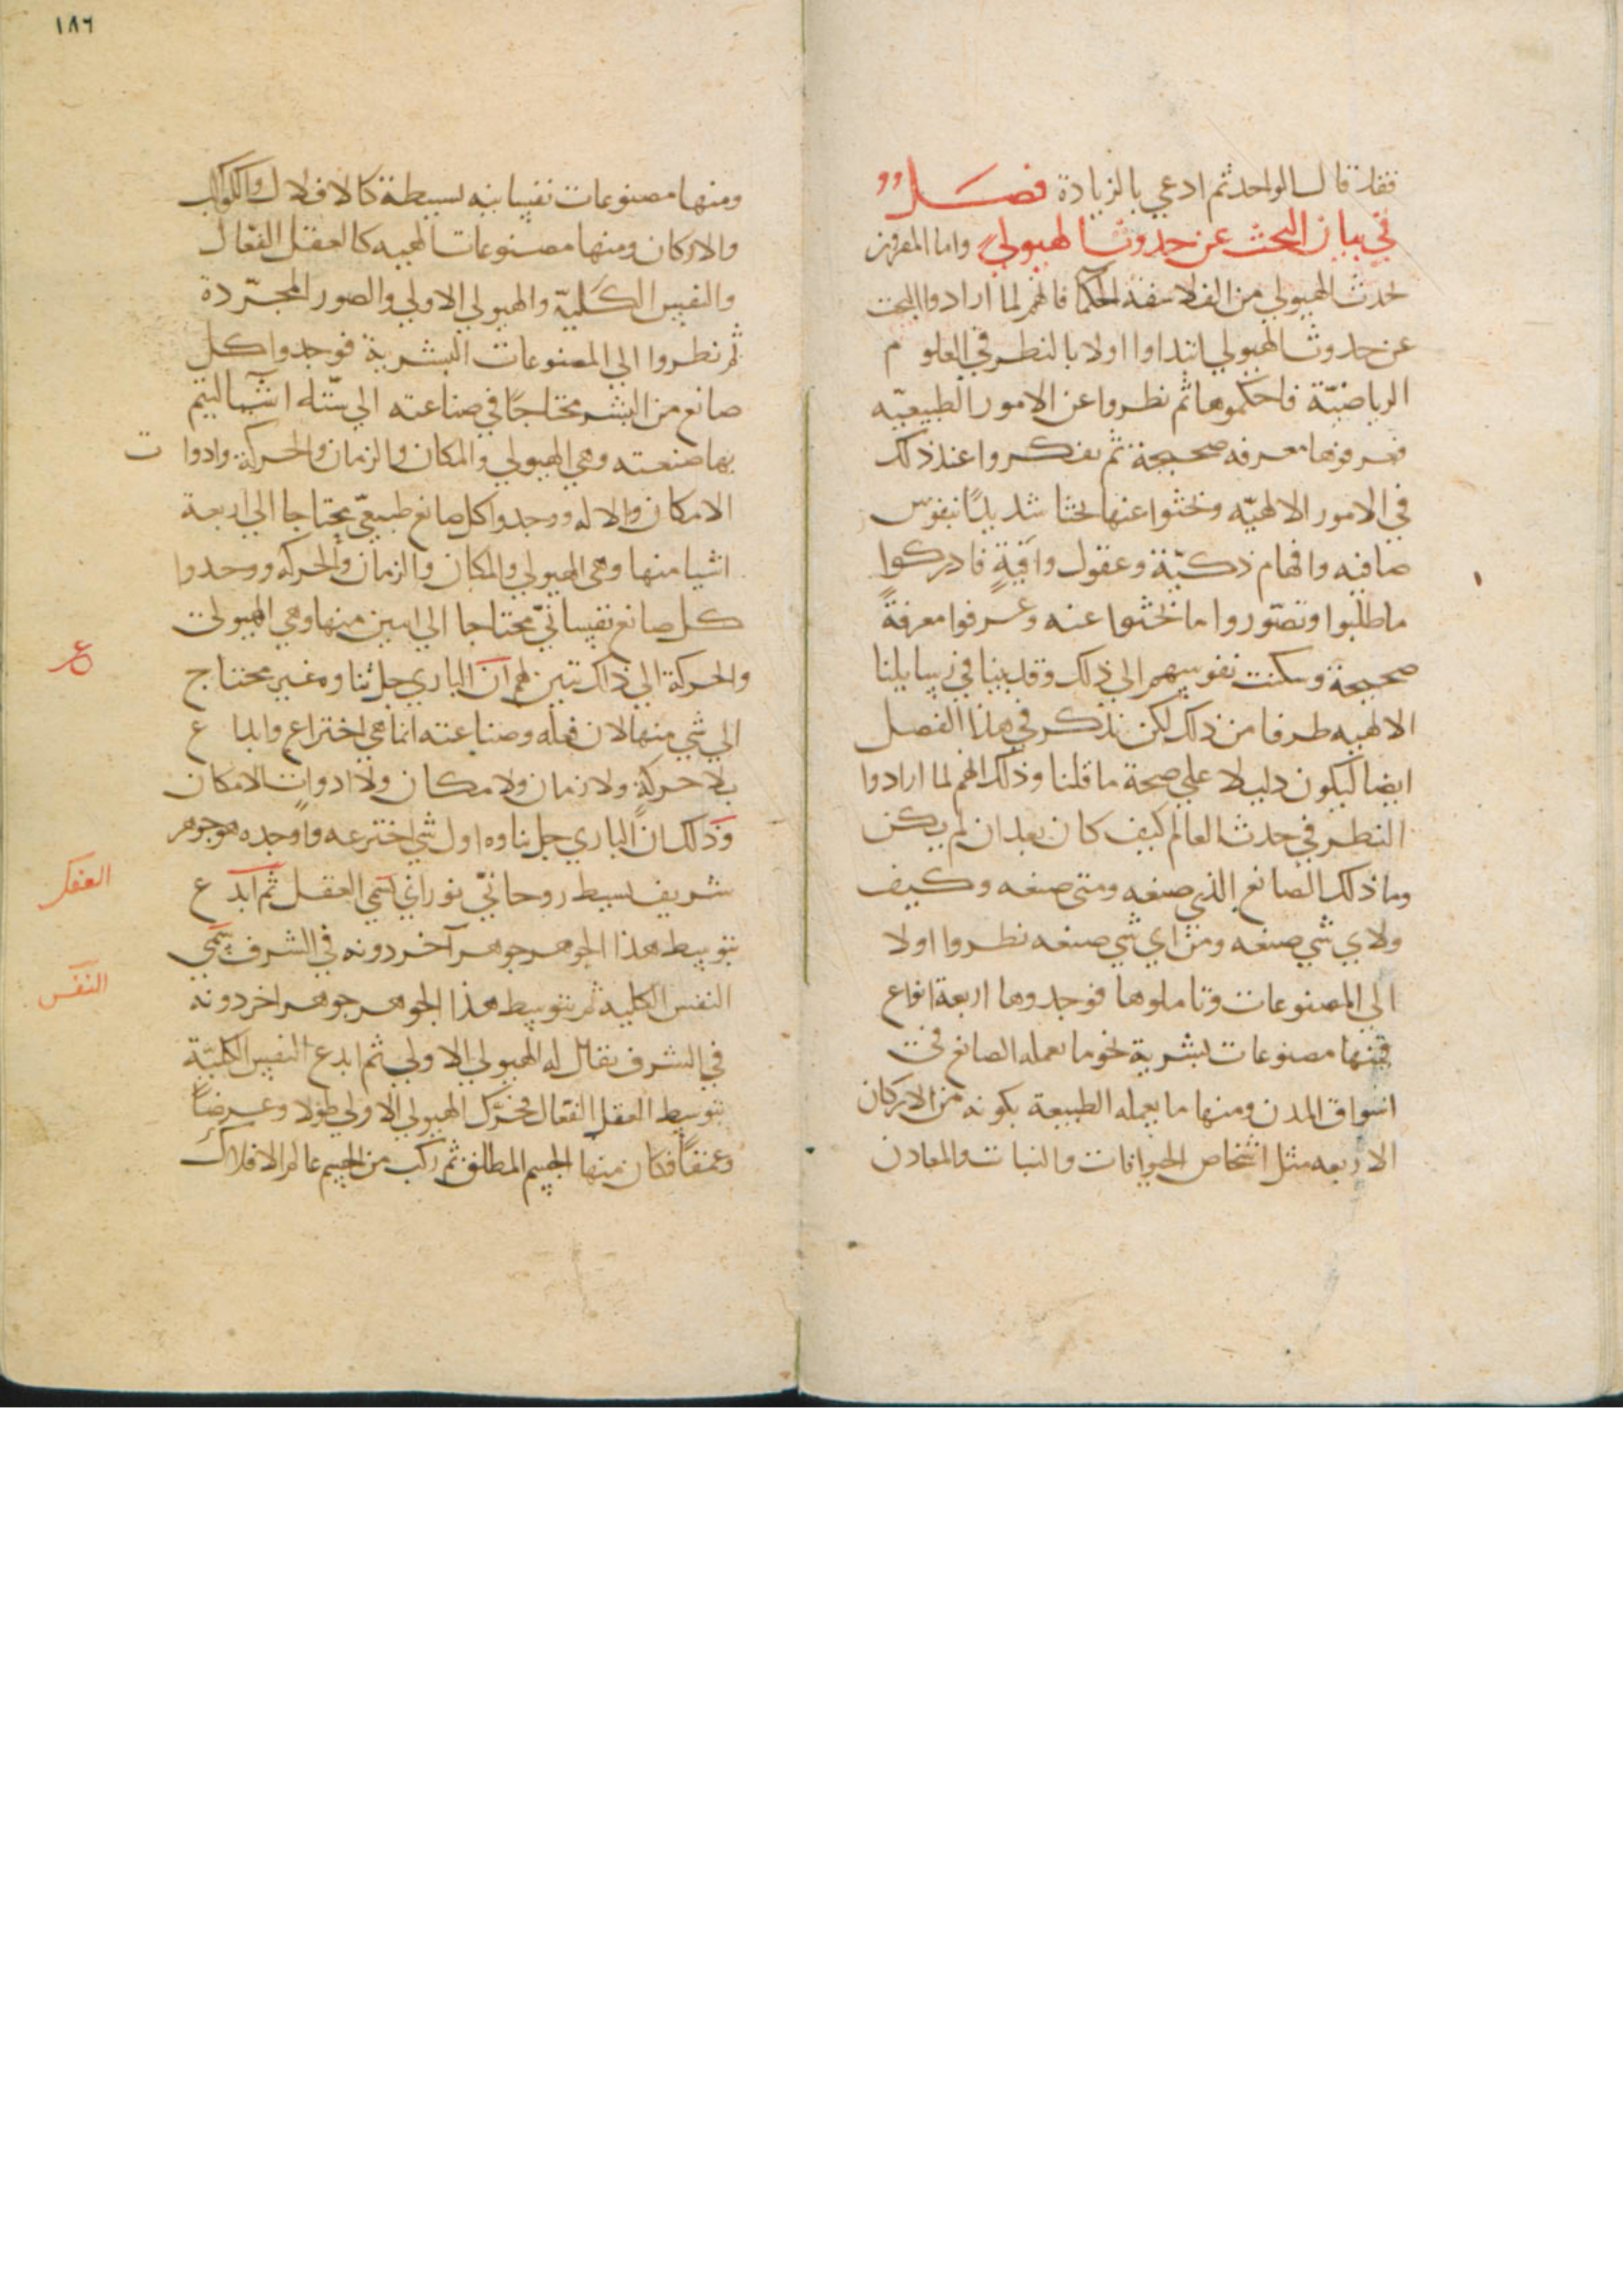 فقد قال الواحد ثم ادعي بالزيادة فصل
في بيان البحث عن حدوث الهيولي واما المقرون
بحدث الهيولي من الفلاسفة الحكما فانهم لما ارادوا البحث
عن حدوث الهيولي ابتداوا اولا بالنظر في العلوم
الرياضيّة فاحكموها ثم نظروا عن الامور الطبيعيّه
فعرفوها معرفه صحيحة ثم تفكروا عند ذلك
في الامور الالهيّه وبحثوا عنها بحثا شديدًا بنفوس
صافيه وافهام ذكيّة وعقول وافيةٍ فادركوا
ما طلبوا وتصّوروا ما بحثوا عنه وعرفوا معرفةً
صحيحة وسكنت نفوسهم الي ذلك وقد بينا في رسايلنا
الالهيه طرفا من ذلك لكن نذكر في هذا الفصل
ايضا ليكون دليلا علي صحة ما قلنا وذلك انهم لما ارادوا
النظر في حدث العالم كيف كان بعد ان لم يكن
وما ذلك الصانع الذي صنعه ومتى صنعه وكيف
ولاي شي صنعه ومن اي شي صنعه نظروا اولا
الي المصنوعات وتاملوها فوجدوها اربعة انواع
فمنها مصنوعات بشرية نحو ما يعمله الصانع في
اسواق المدن ومنها ما يعمله الطبيعة بكونه من الاركان
الاربعه مثل اشخاص الحيوانات والنبات والمعادن
١٨٦
ومنها مصنوعات نفسانيه بسيطة كالافلاك والكواكب
والاركان ومنها مصنوعات الهيه كالعقل الفعّال
والنفس الكليّة والهيولي الاولي والصور المجرّدة
ثم نظروا الي المصنوعات البشرية فوجدوا كل
صانع من البشر محتاجًا في صناعته الي ستّه اشيا ليتم
بها صنعته وهي الهيولي والمكان والزمان والحركة وادوات
الامكان والاله ووجدوا كل صانع طبيعيّ محتاجا الي اربعة
اشيا منها وهي الهيولي والمكان والزمان والحركه ووجدوا
كل صانع نفسانيّ محتاجا الي اثنين منها وهي الهيولي
والحركة الي ذاك تبين لهم ان الباري جل ثناوه غير محتاج
الي شي منها لان فعله وصناعته انما هي اختراع وابداع
بلا حركةٍ ولا زمان ولا مكان ولا ادوات الامكان
وذالك ان الباري جل ثناوه اول شي اخترعه واوجده هو جوهر
شريف بسيط روحانيّ نوراني يسمي العقل ثم ابدع
بتوسط هذا الجوهر جوهر آخر دونه في الشرف يسمّي
النفس الكلية ثم بتوسط هذا الجوهر جوهر اخر دونه
في الشرف يقال له الهيولي الاولي ثم ابدع النفس الكليّة
بتوسط العقل الفعّال فحرّك الهيولي الاولي طولا وعرضاً
وعمقاً فكان منها الجسم المطلق ثم ركب من الجسم عالم الافلاك
العقل
النفس